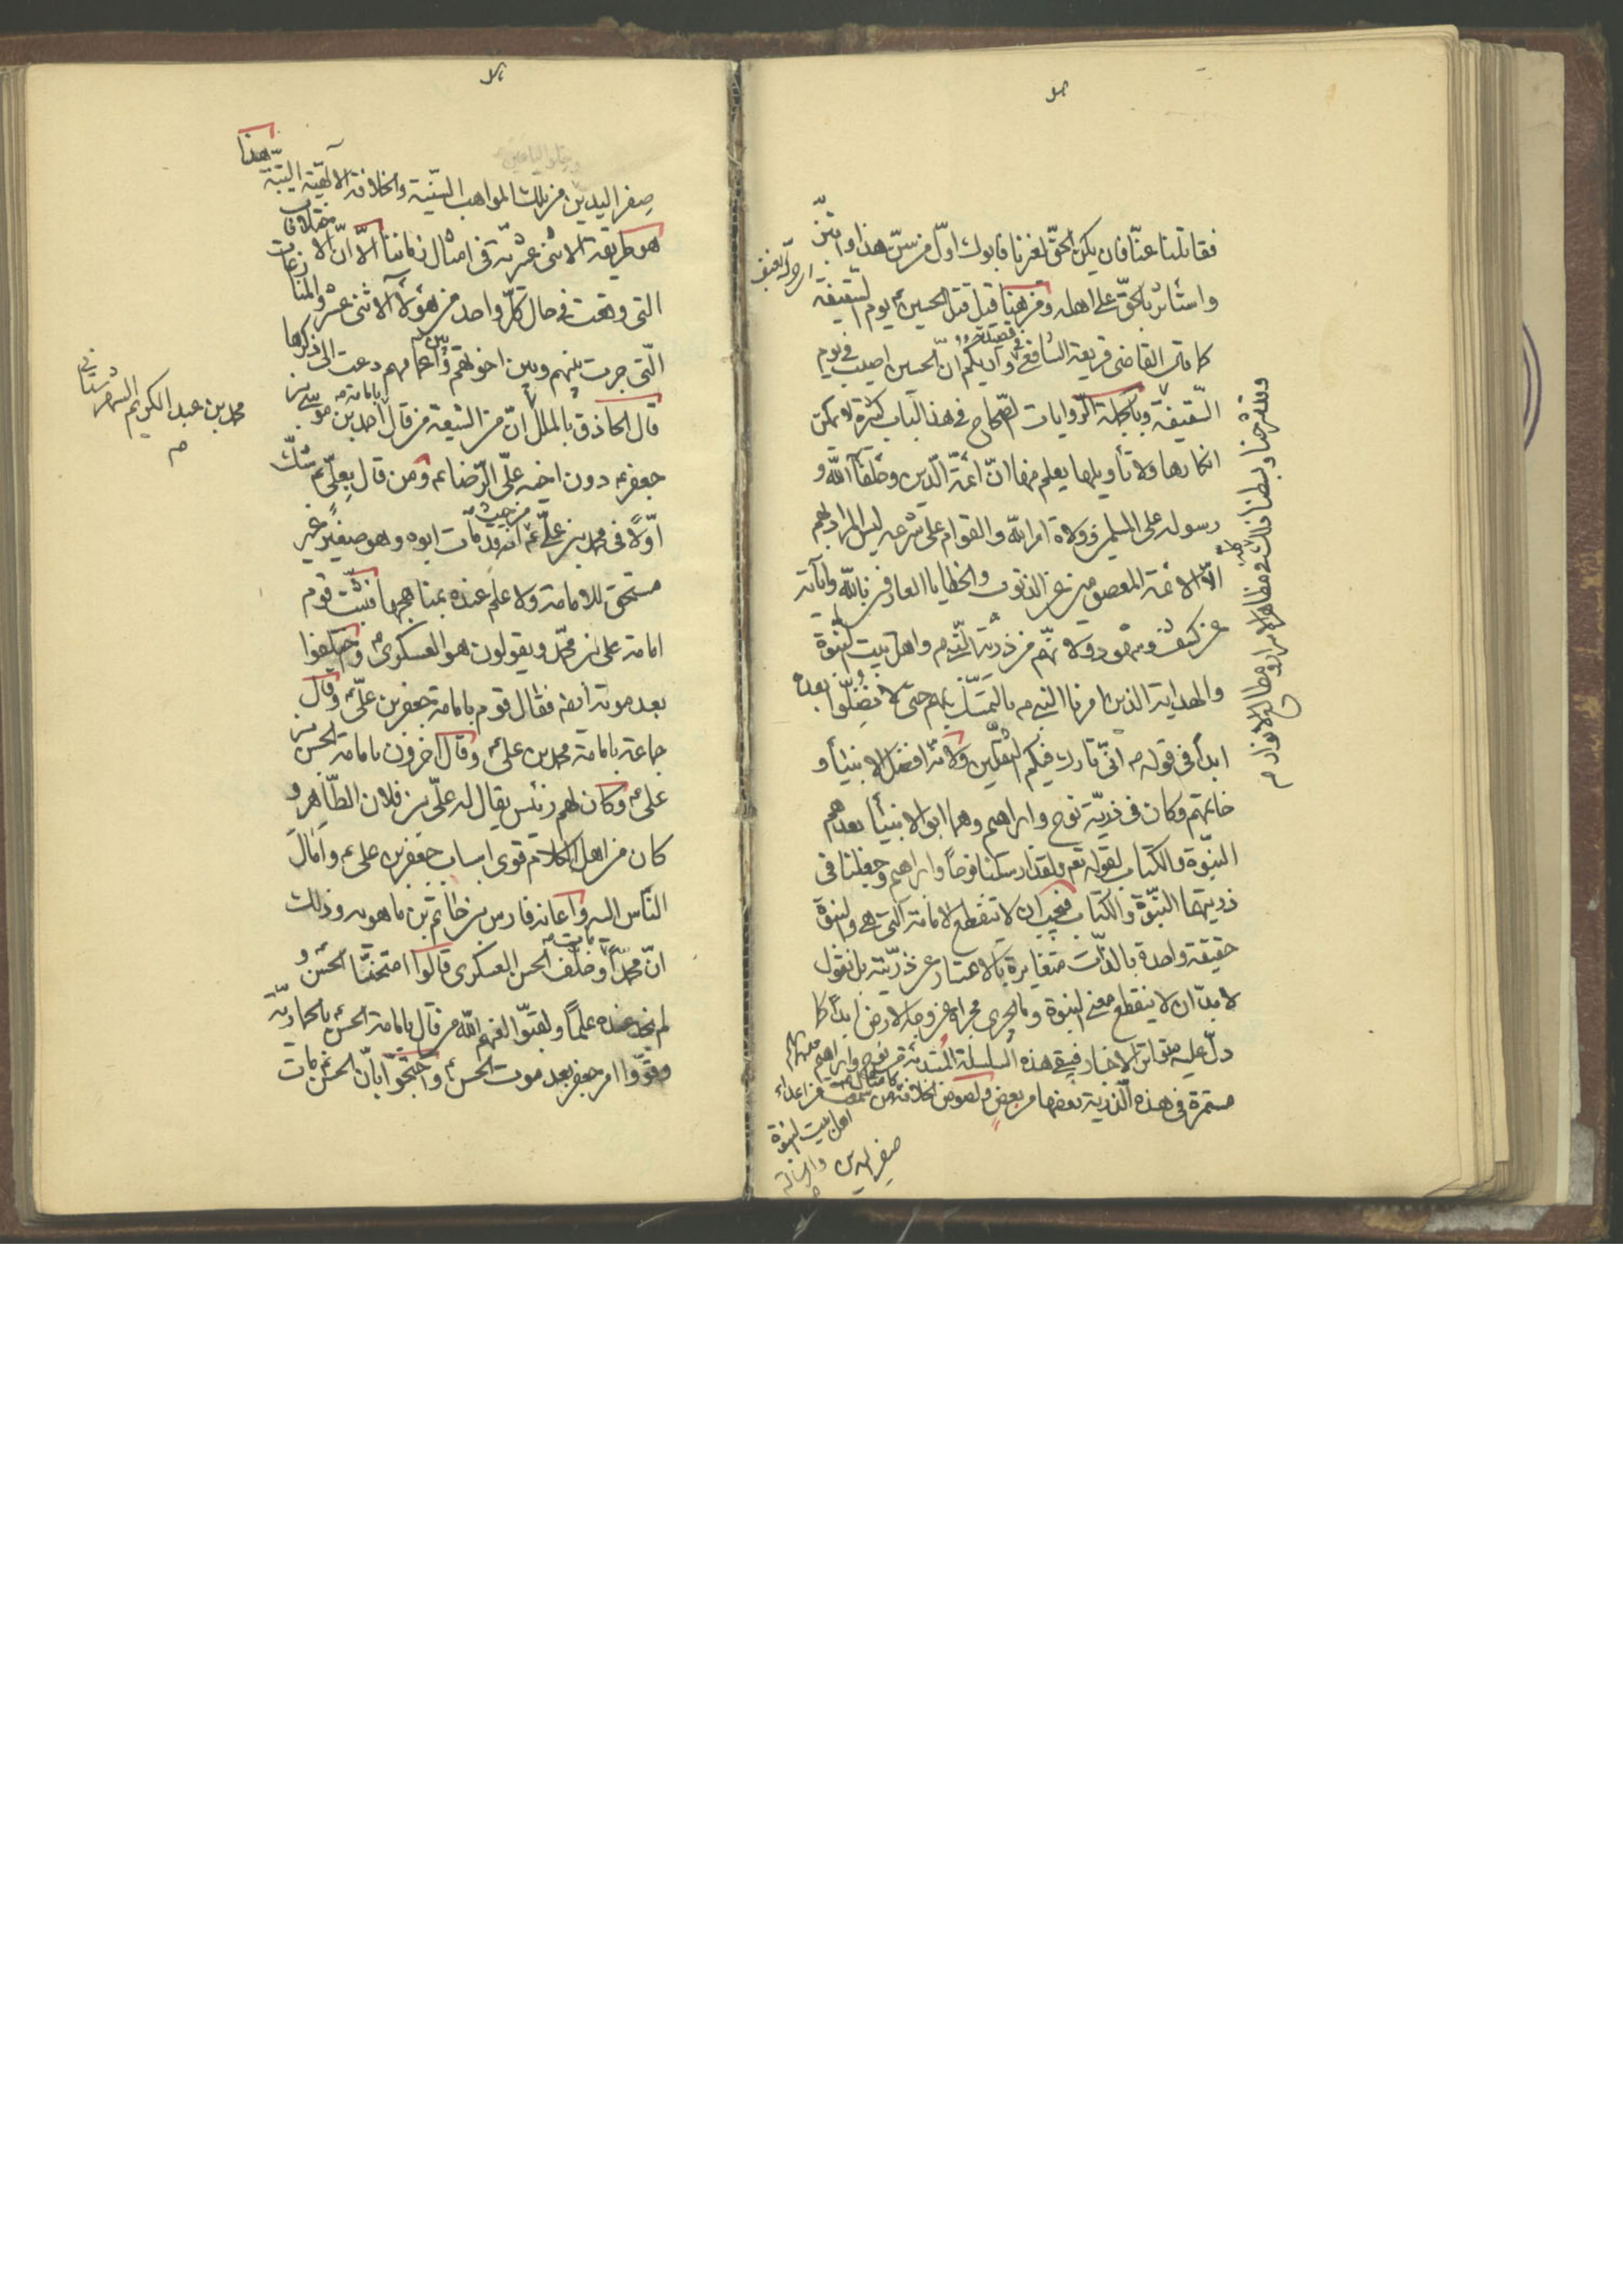 فقاتلنا عنّا فان يكن الحقّ لغيرنا فابوك اوّل من سنّ هذا وابتزّ
واستأثر بالحقّ على اهله ومن هنا قيل قتل الحسين ع يوم السّقيفة
كما قال القاضى قريعة الشافعى واريكم انّ الحسين اصيب فى يوم
السّقيفة وبالجملة الرّوايات الصّحاح فى هذا الباب كثيرة لا يمكن
انكارها ولا تأويلها يعلم منها انّ ائمّة الدّين وخلفآ الله و
رسوله على المسلمين وولاة امر الله والقوام على شرعه ليس المراد بهم
الّا الائمة المعصومين عن الذنوب والخطايا العارفين بالله وآياته
عن كشف وشهود ولانّهم من ذريّة النّبى ص واهل بيت النّبوة
والهداية الذين امرنا النبى ص بالتمسّك بهم حتى لا نضلّوا بعده
ابدأ فى قوله ص انّى تارك فيكم الثقلين ولانّه افضل الانبيأ و
خاتمهم وكان فى ذريّة نوح وابراهيم وهما ابو الانبيأ بعدهم
النبوّة والكتاب لقوله تعم ولقد ارسلنا نوحاً وابراهيم وجعلنا فى
ذريتهما النبّوة والكتاب فيجب ان لا تنقطع الامامة الّتى هى والنبوة
حقيقة واحدة بالذّات متغايرة بالاعتبار عن ذريّته بل نقول
لابدّ ان لا ينقطع معنى النبوة وما يجرى مجراه عن وجه الارض ابداً كما
دلّ عليه متواتر الاخبار فيبقى هذه السلسلة المبتدئة من نوح وابراهيم
مستمرة فى هذه الذرية بعضها من بعض ولصوص الخلافة من اعداء
اهل بيت النبوة
صفر اليدين
وقد شرحنا وبسطنا ذلك فى مظاهر الاسرار ومطالع الانوار م
صفر اليدين من تلك المواهب السّنية والخلافة الالٓهيّة البتّة هذا
هو طريقة الاثنى عشريّة فى امثال زماننا الّا انّ الاختلافات
التى وقعت فى حال كلّ واحد من هؤلآء الاثنى عشر والمنازعات
الّتى جرت بينهم وبين اخوتهم واعمامهم دعت الى ذكرها
قال الحاذق بالملل انّ من الشيعة من قال بامامة احمد بن موسى بن
جعفر ع دون اخيه علىّ الرّضا ع ومن قال بعلىّ ع شكّ
اوّلا فى محمد بن علىّ ع من حيث انه قد مات ابوه وهو صغير غير
مستحق للامامة ولا علم عنده بمناهجها فثبت قوم
امامة على بن محمّد ويقولون هو العسكرى واختلفوا
بعد موته ايضه فقال قوم بامامة جعفر بن علىّ وقال
جماعة بامامة محمد بن على ع وقال اخرون بامامة الحسن بن
على ع وكان لهم رئيس يقال له علىّ بن فلان الطّاهر و
كان من اهل الكلام قوى اسباب جعفر بن على ع وامال
النّاس اليه واعانه فارس بن حاتم بن ماهويه وذلك
انّ محمّداً مات وخلّف الحسن العسكرى قالوا امتحنّا الحسن ع و
لم نجد عنده علماً ولقبّوا لعنهم الله من قال بامامة الحسن ع بالحماريّة
وقوّوا امر جعفر بعد موت الحسن ع واحتجّوا بانّ الحسن ع مات
محمد بن عبد الكريم الشهرستانى
م